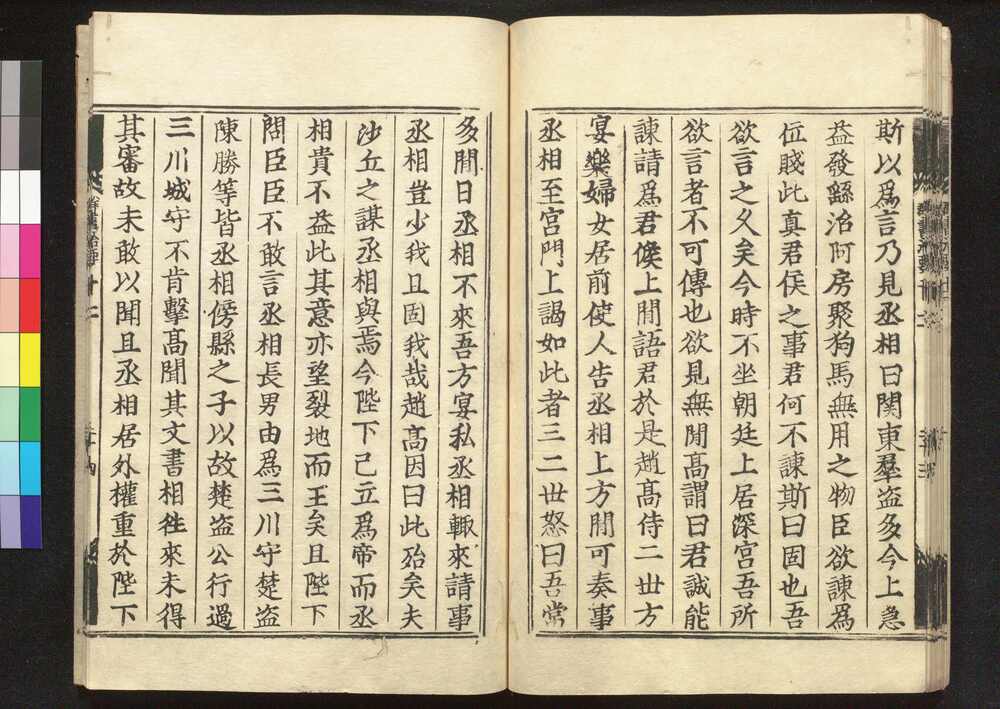 斯以爲言乃見丞相曰関東羣盗多今上急
益發繇治阿房聚狗馬無用之物臣欲諫爲
位賎此真君侯之事君何不諫斯曰固也吾
欲言之久矣今時不坐朝廷上居深宮吾所
欲言者不可傳也欲見無閒髙謂曰君誠能
諫請爲君候上閒語君於是趙髙侍二世方
宴樂婦女居前使人告丞相上方閒可奏事
丞相至宮門上謁如此者三二世怒曰吾常
多閒日丞相不來吾方宴私丞相輙來請事
丞相豈少我且固我哉趙髙因曰此殆矣夫
沙丘之謀丞相與焉今陛下已立爲帝而丞
相貴不益此其意亦望裂地而王矣且陛下
問臣臣不敢言丞相長男由爲三川守楚盗
陳勝等皆丞相傍縣之子以故楚盗公行過
三川城守不肯擊髙聞其文書相徃來未得
其審故未敢以聞且丞相居外權重於陛下
群書治要十二